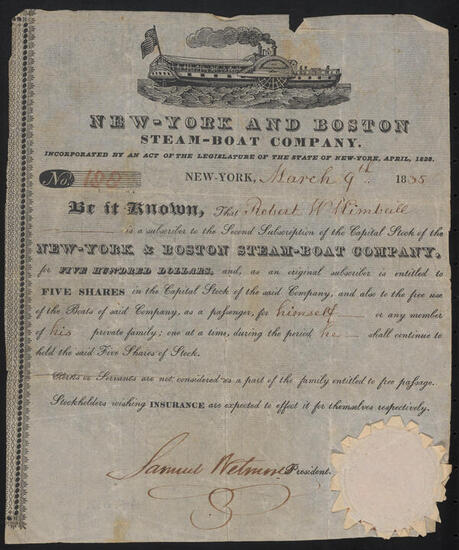 NEW-YORK AND BOSTON
STEAM-BOAT COMPANY.
INCORPORATED BY AN ACT OF THE LEGISLATURE OF THE STATE OF NEW-YORK, APRIL, 1828.
No. 188 NEW-YORK, March 9th 1835
Be it Known, That Robert W Kimball
is a subscriber to the Second Subscription of the Capital Stock of the
NEW-YORK & BOSTON STEAM-BOAT COMPANY,
for FIVE HUNDRED DOLLARS, and, as an original subscriber is entitled to
FIVE SHARES in the Capital Stock of the said Company, and also to the free use
of the Boats of said Company, as a passenger, for himself or any member
of his private family; one at a time, during the period he shall continue to
hold the said Five Shares of Stock.
Clerks or Servants are not considered as a part of the family entitled to free passage.
Stockholders wishing INSURANCE are expected to effect it for themselves respectively.
Samuel Wetmore President.